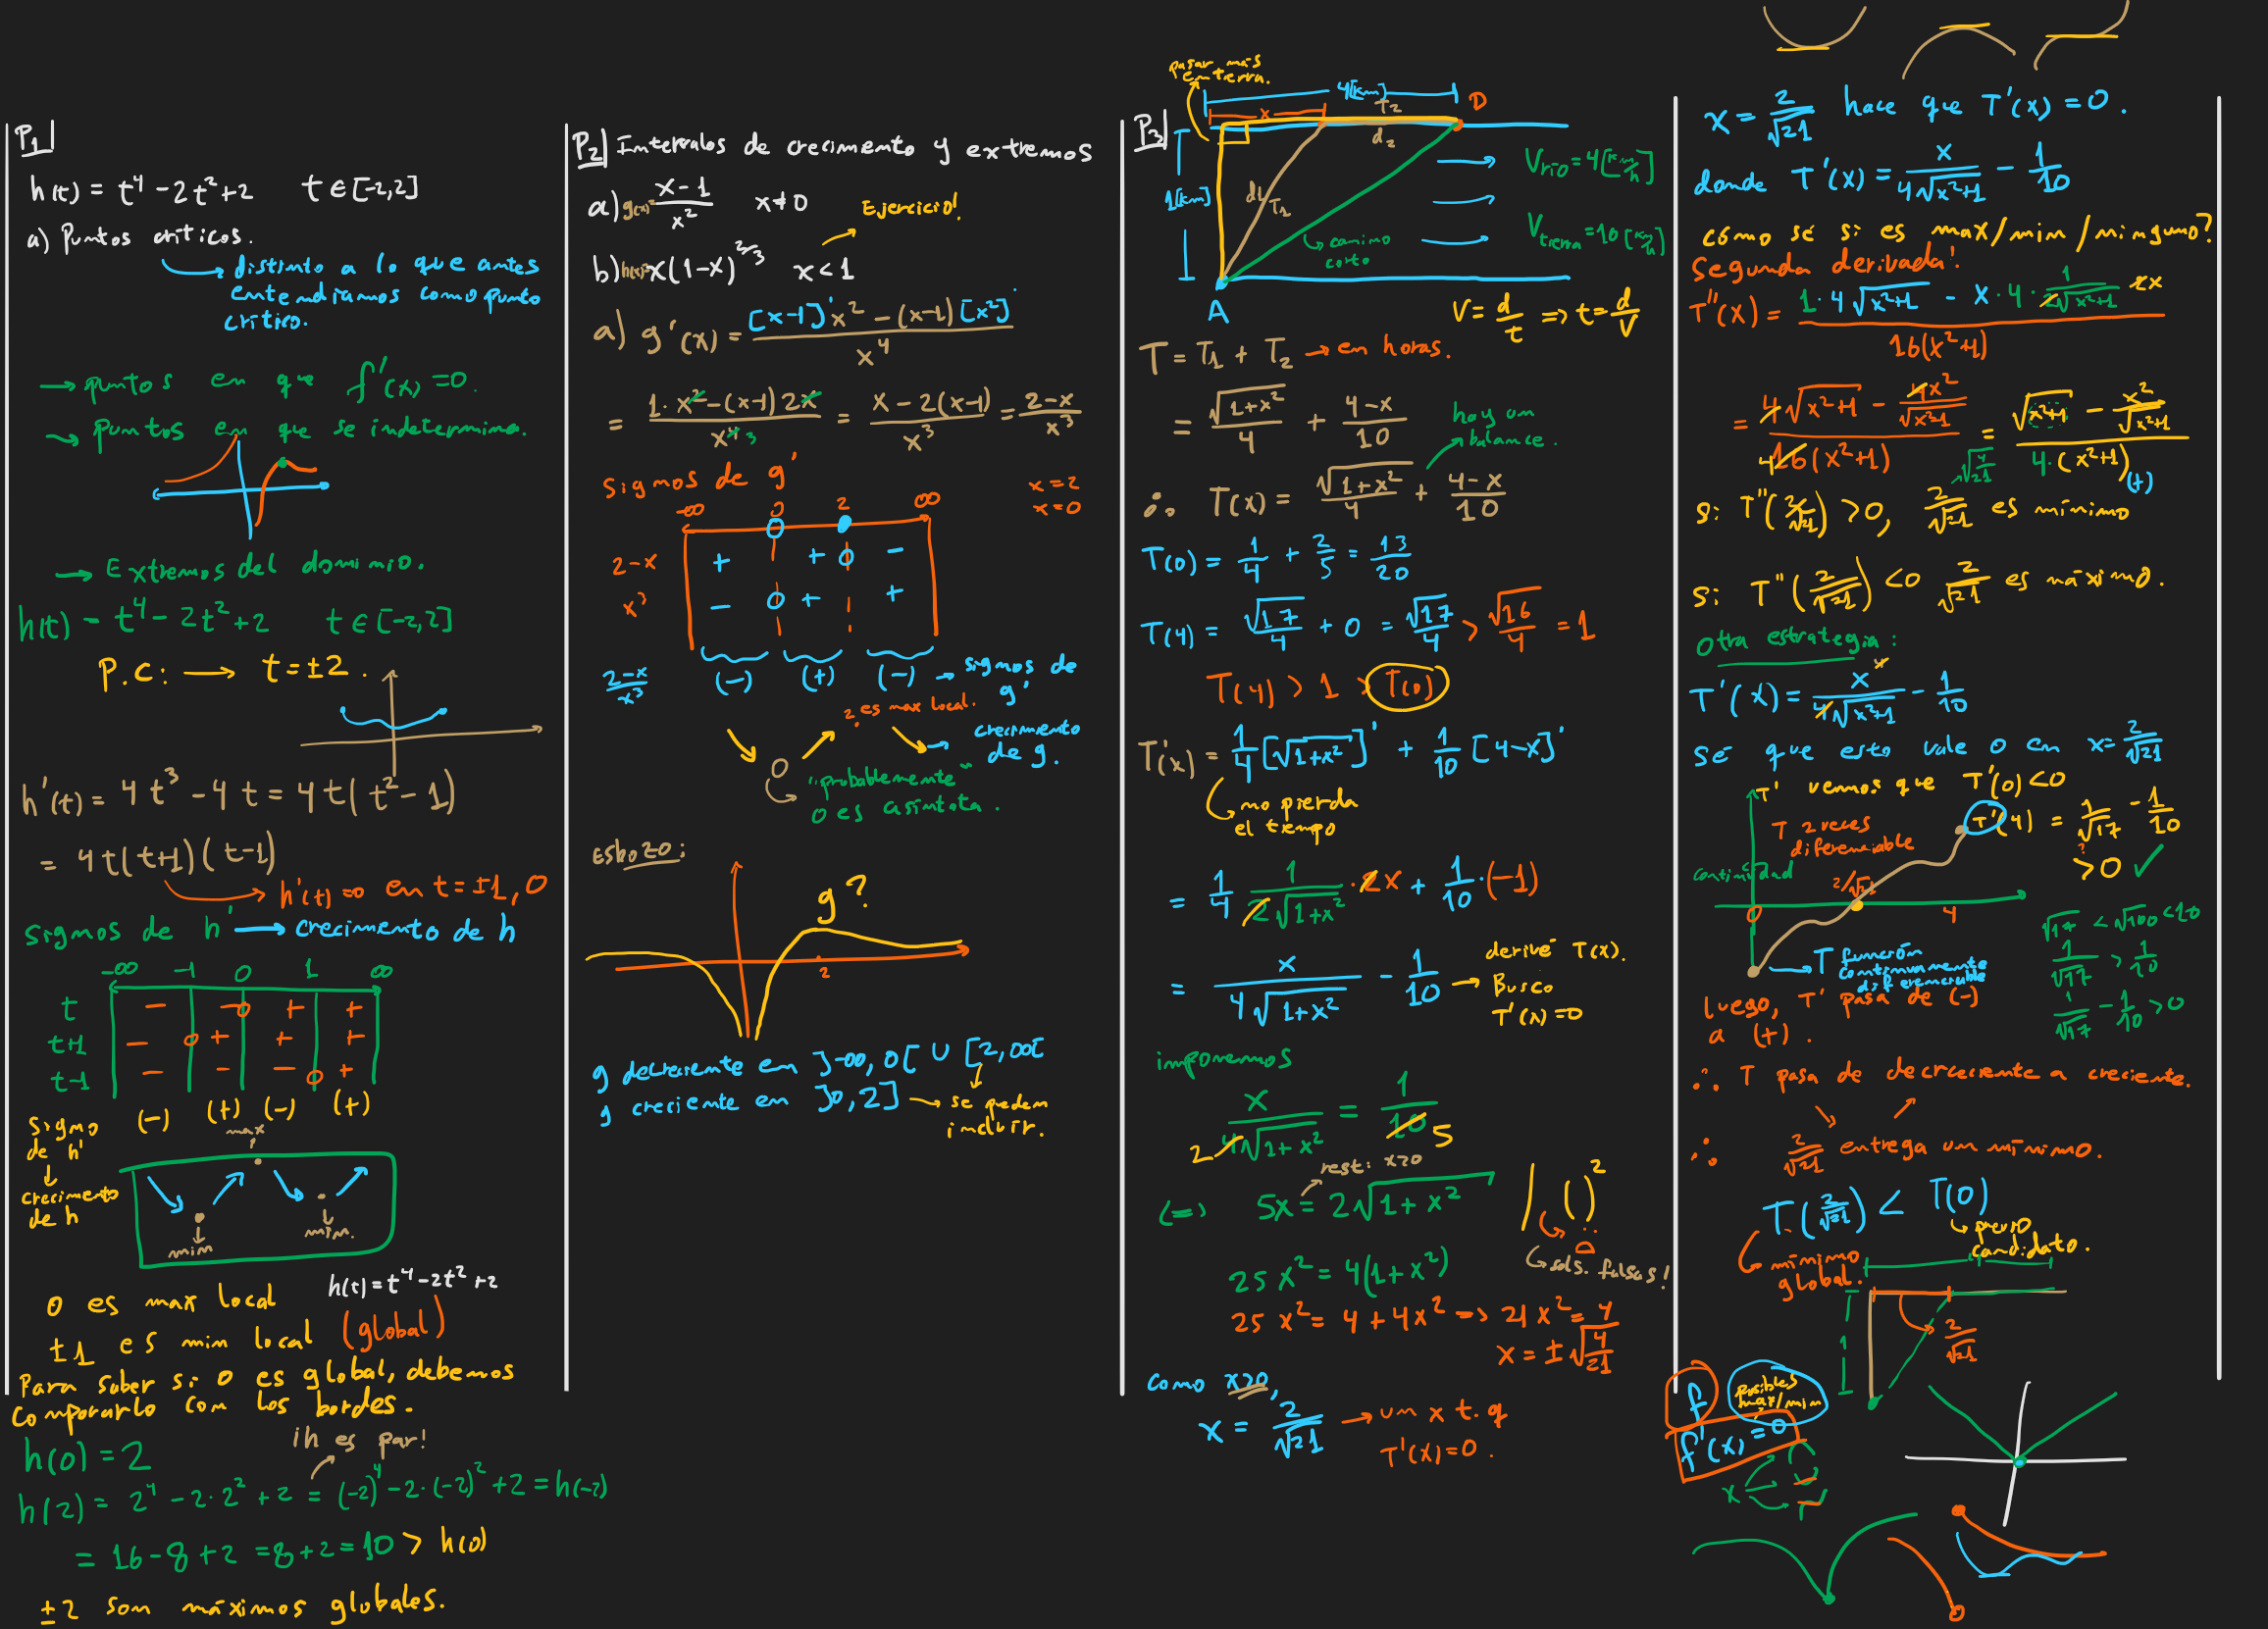 P1
h(t) = t⁴ - 2t² + 2   t ∈ [-2,2]
a) Puntos críticos.
distinto a lo que antes
entendíamos como punto
crítico.
→ puntos en que f'(x) = 0.
→ puntos en que se indetermina.
→ Extremos del dominio.
h(t) = t⁴ - 2t² + 2   t ∈ [-2,2]
P.C: → t = ±2.
h'(t) = 4t³ - 4t = 4t(t² - 1)
= 4t(t+1)(t-1)
→ h'(t) = 0 en t = ±1, 0
signos de h' → crecimento de h
-∞ -1 0 1 ∞
t - - 0 + +
t+1 - 0 + + +
t-1 - - - 0 +
signo de h' (-) (+) (-) (+)
↓
crecimento
de h
max
min
min.
0 es max local
h(t) = t⁴ - 2t² + 2
±1 es min local (global)
Para saber si 0 es global, debemos
compararlo con los bordes.
h(0) = 2
¡h es par!
h(2) = 2⁴ - 2·2² + 2 = (-2)⁴ - 2·(-2)² + 2 = h(-2)
= 16 - 8 + 2 = 8 + 2 = 10 > h(0)
±2 son máximos globales.
P2 Intervalos de crecimento y extremos
a) g(x) = x-1/x²   x ≠ 0
Ejercicio!
b) h(x) = x(1-x)^2/3   x < 1
a) g'(x) = [x-1]' x² - (x-1)[x²]' / x⁴
= 1·x² - (x-1)2x / x⁴ 3 = x - 2(x-1) / x³ = 2-x / x³
signos de g'
x = 2
x = 0
-∞ 0 2 ∞
2-x + + 0 -
x³ - 0 + +
2-x/x³ (-) (+) (-) → signos de
g'
2 es max local.
crecimento
de g.
0
"probablemente"
0 es asíntota.
Esbozo:
g?
2
g decreciente en ]-∞, 0[ ∪ [2, ∞[
g creciente en ]0, 2] → se pueden
incluir.
P3
pasar más
en tierra.
4[km]
x
T2
D
d2
1[km]
d1
T1
camino
corto
V río = 4[km/h]
V tierra = 10[km/h]
A
V = d/t ⇒ t = d/V
T = T1 + T2 → en horas.
= √1+x² / 4 + 4-x / 10
hay un
balance.
∴ T(x) = √1+x² / 4 + 4-x / 10
T(0) = 1/4 + 2/5 = 13/20
T(4) = √17/4 + 0 = √17/4 > √16/4 = 1
T(4) > 1 > T(0)
T'(x) = 1/4 [√1+x²]' + 1/10 [4-x]'
no pierda
el tiempo
= 1/4 · 1/2√1+x² · 2x + 1/10 · (-1)
= x / 4√1+x² - 1/10 →
derivé T(x).
Busco
T'(x) = 0
imponemos
x / 4√1+x² = 1/10
2 5
rest: x≥0
⟺ 5x = 2√1+x² / ()²
sols. falsas!
25x² = 4(1+x²)
25x² = 4 + 4x² ⇒ 21x² = 4
x = ±√4/21
como x≥0,
x = 2/√21 → un x t.q
T'(x) = 0.
x = 2/√21 hace que T'(x) = 0.
donde T'(x) = x / 4√x²+1 - 1/10
cómo sé si es max/min/ninguno?
segunda derivada!
T''(x) = 1·4√x²+1 - x·4· 1/2√x²+1 · 2x / 16(x²+1)
= 4√x²+1 - 4x²/√x²+1 / 16(x²+1) = √x²+1 - x²/√x²+1 / 4·(x²+1)
4
√4/21
(+)
si T''(2/√21) > 0, 2/√21 es mínimo
si T''(2/√21) < 0 2/√21 es máximo.
otra estrategia:
T'(x) = x / 4√x²+1 - 1/10
sé que esto vale 0 en x = 2/√21
T' vemos que T'(0) < 0
T'(4) = 1/√17 - 1/10
> 0 ✓
T 2 veces
diferenciable
continuidad
2/√21
0
4
→ T función
continuamente
diferenciable
√17 < √100 < 10
1/√17 > 1/10
1/√17 - 1/10 > 0
luego, T' pasa de (-)
a (+).
∴ T pasa de decreciente a creciente.
∴ 2/√21 entrega un mínimo.
T(2/√21) < T(0)
previo
candidato.
mínimo
global.
4
1
2/√21
f
posibles
max/min
f'(x) = 0
x